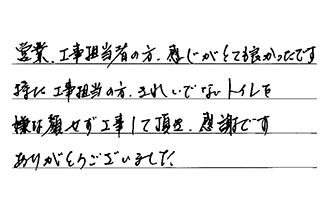 営業、工事担当者の方、感じがとても良かったです
特に工事担当の方、きれいでないトイレを
嫌な顔せず工事して頂き、感謝です
ありがとうございました。